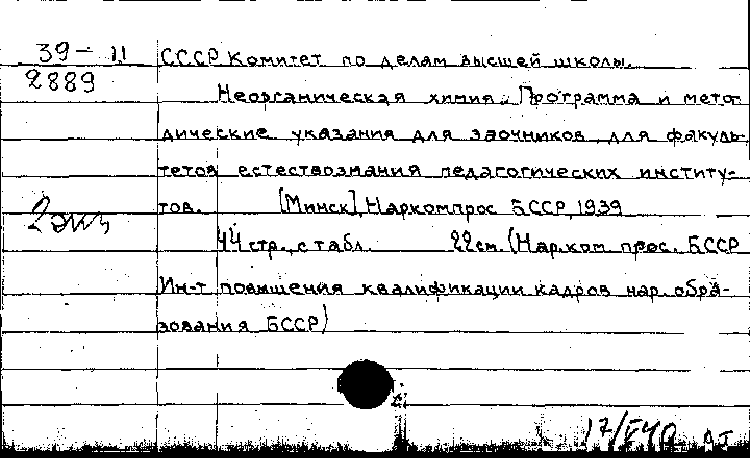 39-11 СССР Комитет по делам высшей школы.
2889
Неорганическая химия. Программа и мето-
дические указания для заочников для факуль-
тетов естествознания педагогических институ-
тов. [Минск], Наркомпрос БССР, 1939
2 экз
44 стр., с табл. 22 см. (Нар. ком прос. БССР
Ин-т повышения квалификации кадров нар. обра-
зования БССР)